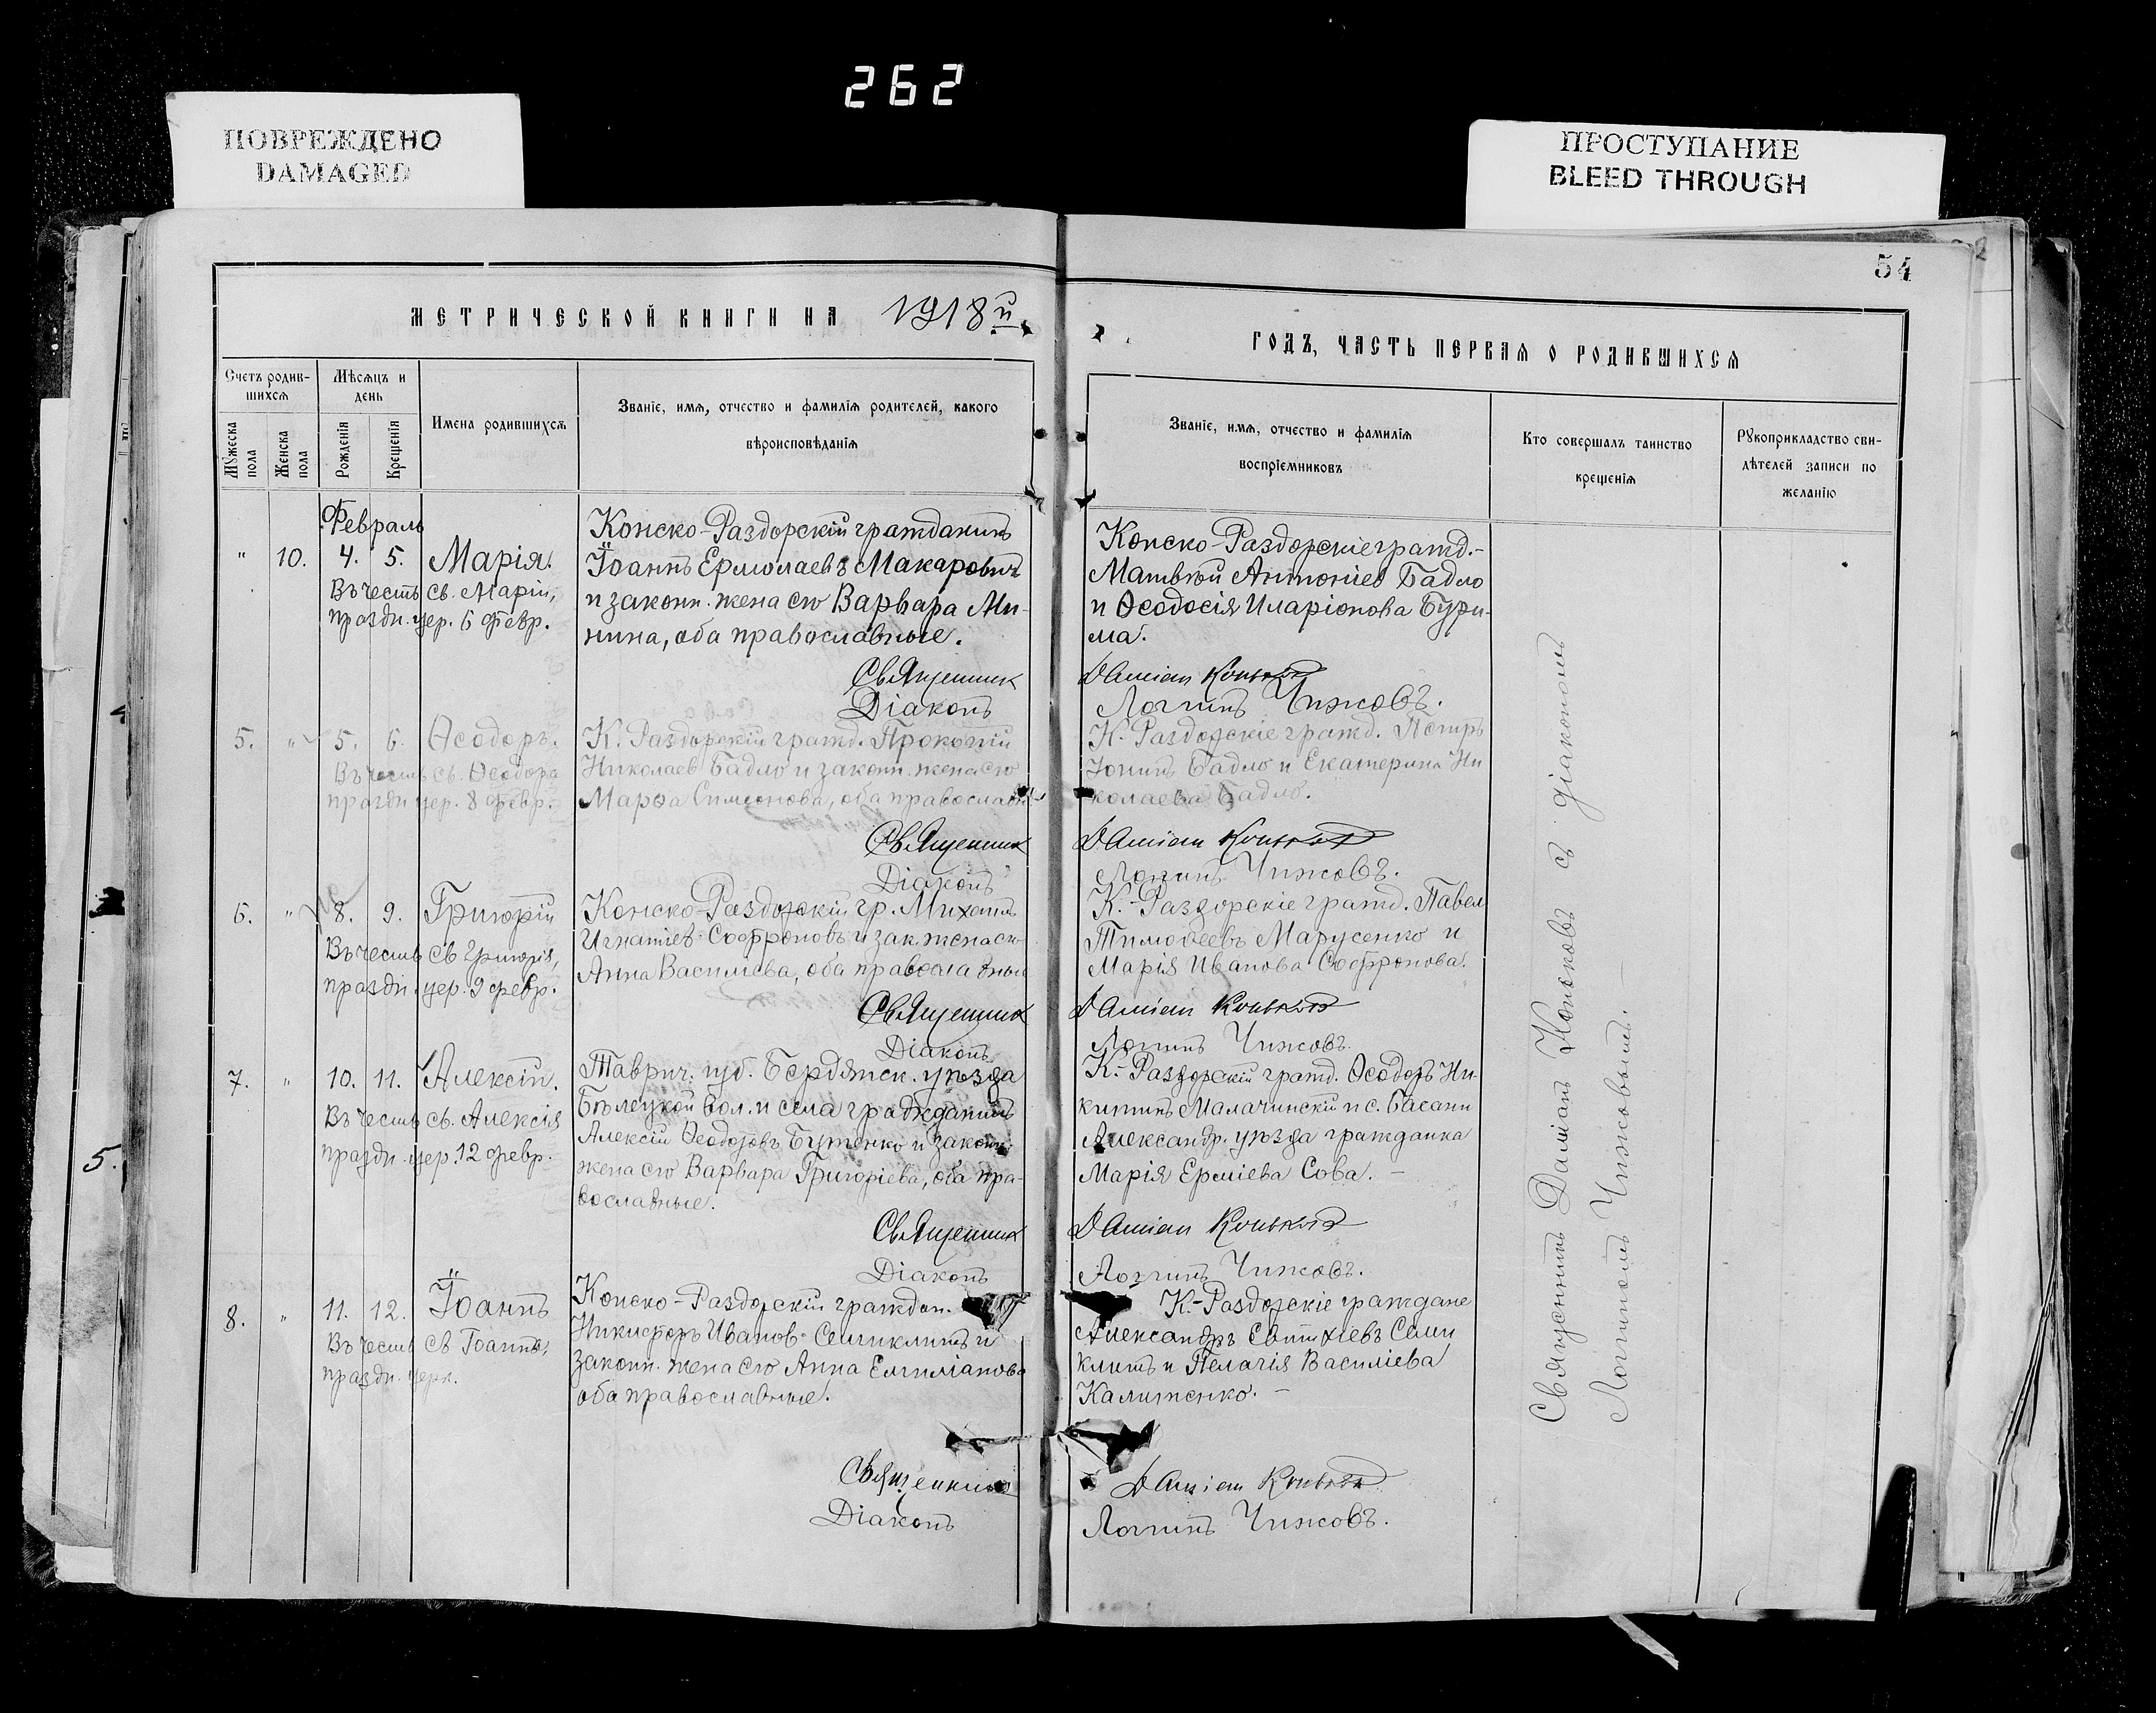 262
ПОВРЕЖДЕНО
DAMAGED
ПРОСТУПАНИЕ
BLEED THROUGH
54
МЕТРИЧЕСКОЙ КНИГИ НА 1918й
ГОДЪ, ЧАСТЬ ПЕРВАЯ О РОДИВШИХСЯ
Счетъ родив-
шихся
Мужеска пола
Женска пола
Мѣсяцъ и
день
Рожденія
Крещенія
Имена родившихся
Званіе, имя, отчество и фамилія родителей, какого
вѣроисповѣданія
Званіе, имя, отчество и фамилія
воспріемниковъ
Кто совершалъ таинство
крещенія
Рукоприкладство сви-
дѣтелей записи по
желанію
Февраль
" 10. 4. 5. Марія.
Въ честь св. Маріи,
праздн. цер. 6 февр.
Конско-Раздорскій гражданинъ
Іоаннъ Ермолаевъ Макаровичъ
и законн. жена его Варвара Ми-
нина, оба православные.
Конско-Раздорскіе гражд.-
Матвѣй Антоніев Бадло
и Ѳеодосія Иларіонова Бури-
ма.
Священник Даміан
Діаконъ Логгинъ Чижовъ.
5. " 5. 6. Ѳеодоръ.
Въ честь св. Ѳеодора
праздн. цер. 8 февр.
К. Раздорскій гражд. Прокопій
Николаев Бадло и законн. жена его
Марѳа Симеонова, оба православн.
К.-Раздорскіе гражд. Петръ
Іонинъ Бадло и Екатерина Ни
колаева Бадло.
Священник Даміан
Діаконъ Логгинъ Чижовъ.
6. " 8. 9. Григорій
Въ честь св Григорія,
праздн. цер. 9 февр.
Конско-Раздорскій гр. Михаилъ
Игнатіев Софроновъ и зак. жена его
Анна Василіева, оба православные
К.-Раздорскіе гражд. Павел
Тимоѳеевъ Марусенко и
Марія Иванова Софронова.
Священник Даміан
Діаконъ Логгинъ Чижовъ.
7. " 10. 11. Алексій.
Въ честь св. Алексія
праздн. цер. 12 февр.
Таврич. губ. Бердянск. уѣзда
Бѣлецкой вол. и села гражданинъ
Алексій Ѳеодоровъ Бутенко и законн.
жена его Варвара Григоріева, оба пра-
вославные.
К.-Раздорскій гражд. Ѳеодоръ Ни-
китинъ Малачинскій и с. Басани
Александр. уѣзда гражданка
Марія Ерміева Сова. -
Священник Даміан
Діаконъ Логгинъ Чижовъ.
8. " 11. 12. Іоаннъ
Въ честь св Іоанна,
праздн. церк.
Конско-Раздорскій граждан.
Никифоръ Иванов Семиклитъ и
законн. жена его Анна Емиліанова
оба православные.
К.-Раздорскіе граждане
Александръ Евтихіевъ Семи
клитъ и Пелагія Василіева
Калитенко. -
Священник Даміан
Діаконъ Логгинъ Чижовъ.
Священникъ Даміанъ Коньковъ съ діакономъ
Логгиномъ Чижовымъ. -
5.